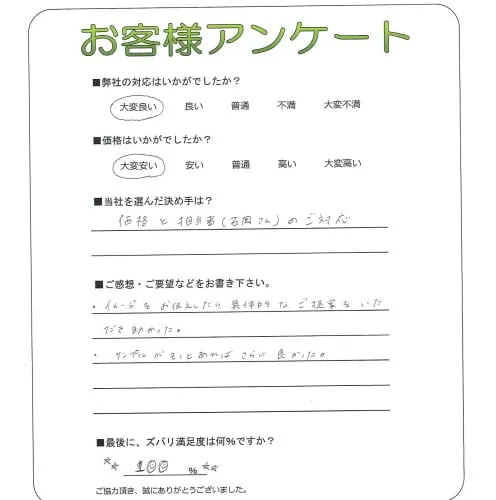 お客様アンケート
■弊社の対応はいかがでしたか？
大変良い 良い 普通 不満 大変不満
■価格はいかがでしたか？
大変安い 安い 普通 高い 大変高い
■当社を選んだ決め手は？
価格と担当者(石岡さん)のご対応
■ご感想・ご要望などをお書き下さい。
・イメージをお伝えしたら具体的なご提案をいた
だき助かった。
・サンプルがもっとあればさらに良かった。
■最後に、ズバリ満足度は何%ですか？
☆☆ 100 % ☆☆
ご協力頂き、誠にありがとうございました。